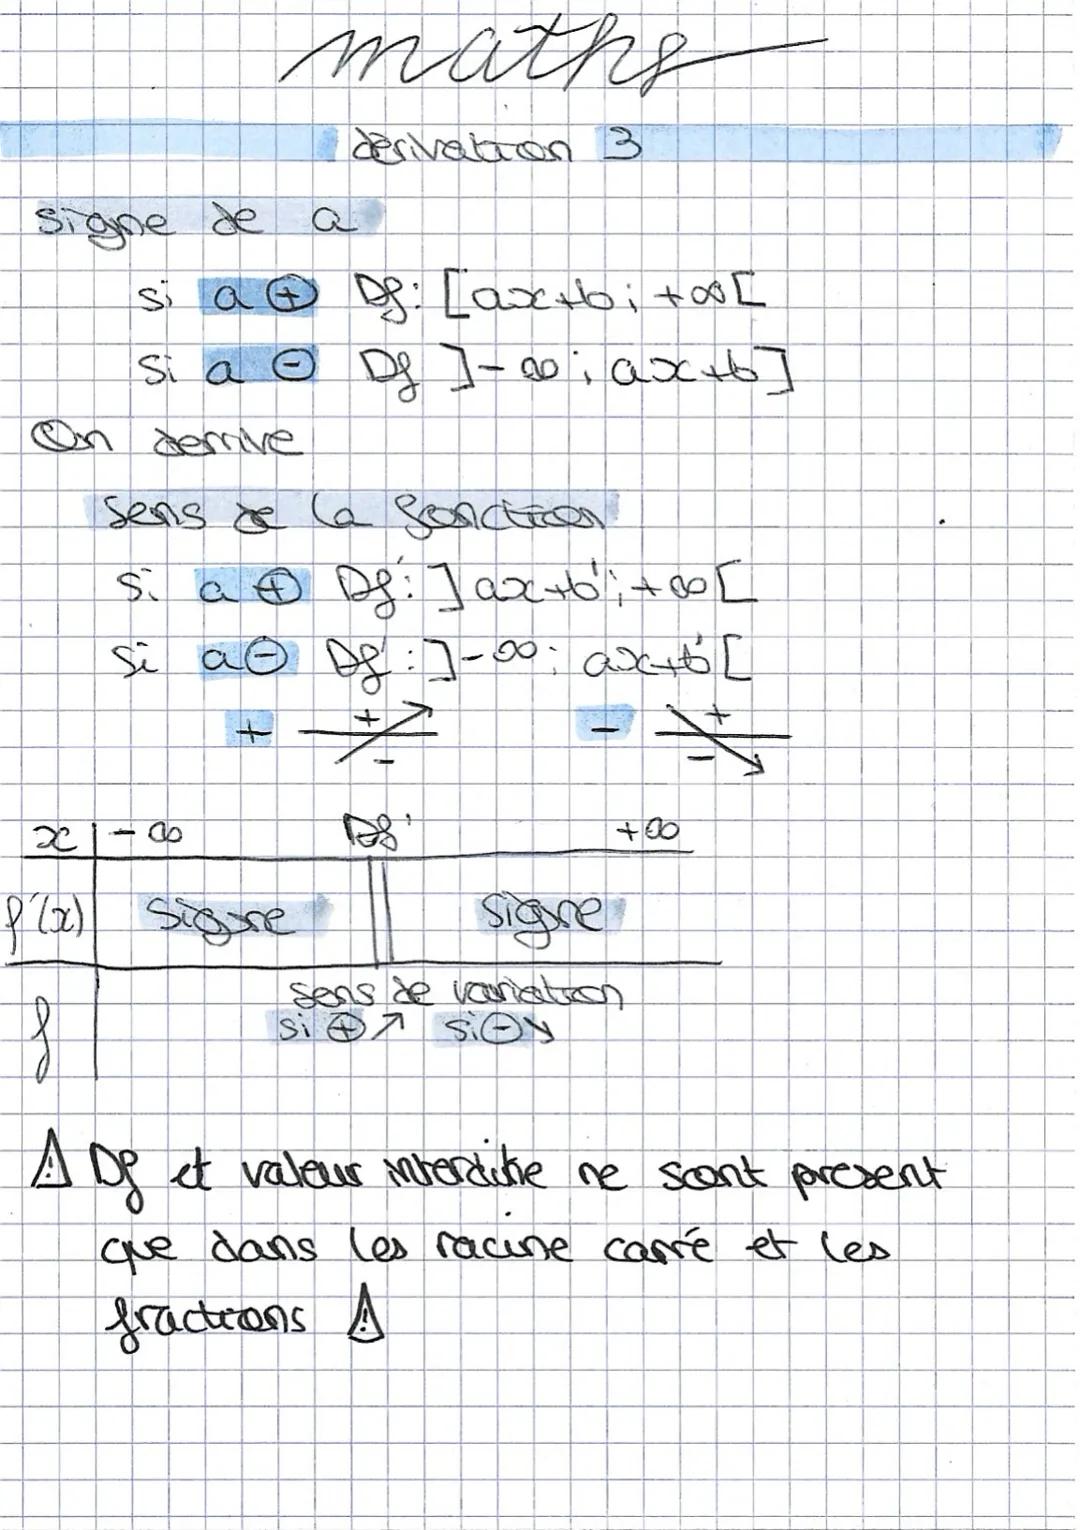 maths
dérivation 3
signe de a
si a ⊕ Df: [ax+b; +∞[
si a ⊖ Df ]-∞; ax+b]
On derrive
sens de la fonction
si a ⊕ Df': ]ax+b'; +∞[
si a ⊖ Df': ]-∞; ax+b'[
+ + - - + -
x -∞ Df' +∞
f'(x) signe signe
sens de variation
f si ⊕ ↗ si ⊖ ↘
⚠ Df et valeur interdite ne sont present
que dans les racine carré et les
fractions ⚠